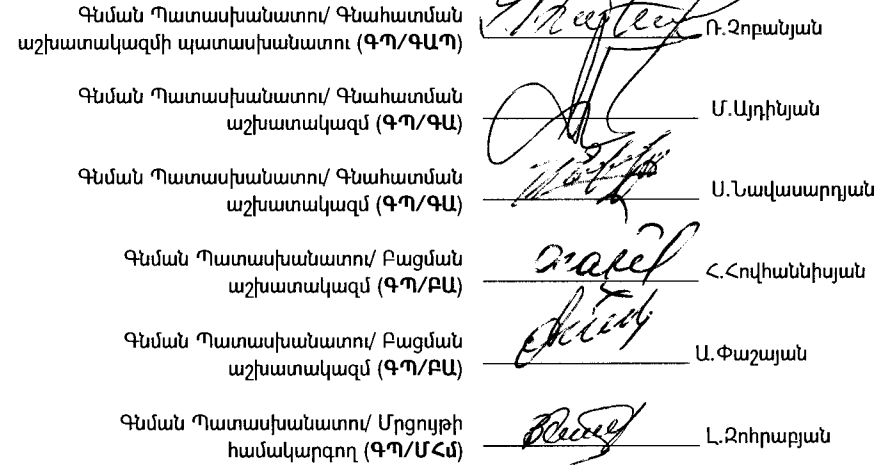 Գնման Պատասխանատու/ Գնահատման
աշխատակազմի պատասխանատու (ԳՊ/ԳԱՊ) Ռ.Չոբանյան
Գնման Պատասխանատու/ Գնահատման
աշխատակազմ (ԳՊ/ԳԱ) Մ.Այդինյան
Գնման Պատասխանատու/ Գնահատման
աշխատակազմ (ԳՊ/ԳԱ) Ս.Նավասարդյան
Գնման Պատասխանատու/ Բացման
աշխատակազմ (ԳՊ/ԲԱ) Հ.Հովհաննիսյան
Գնման Պատասխանատու/ Բացման
աշխատակազմ (ԳՊ/ԲԱ) Ա.Փաշայան
Գնման Պատասխանատու/ Մրցույթի
համակարգող (ԳՊ/ՄՀմ) Լ.Զոհրաբյան